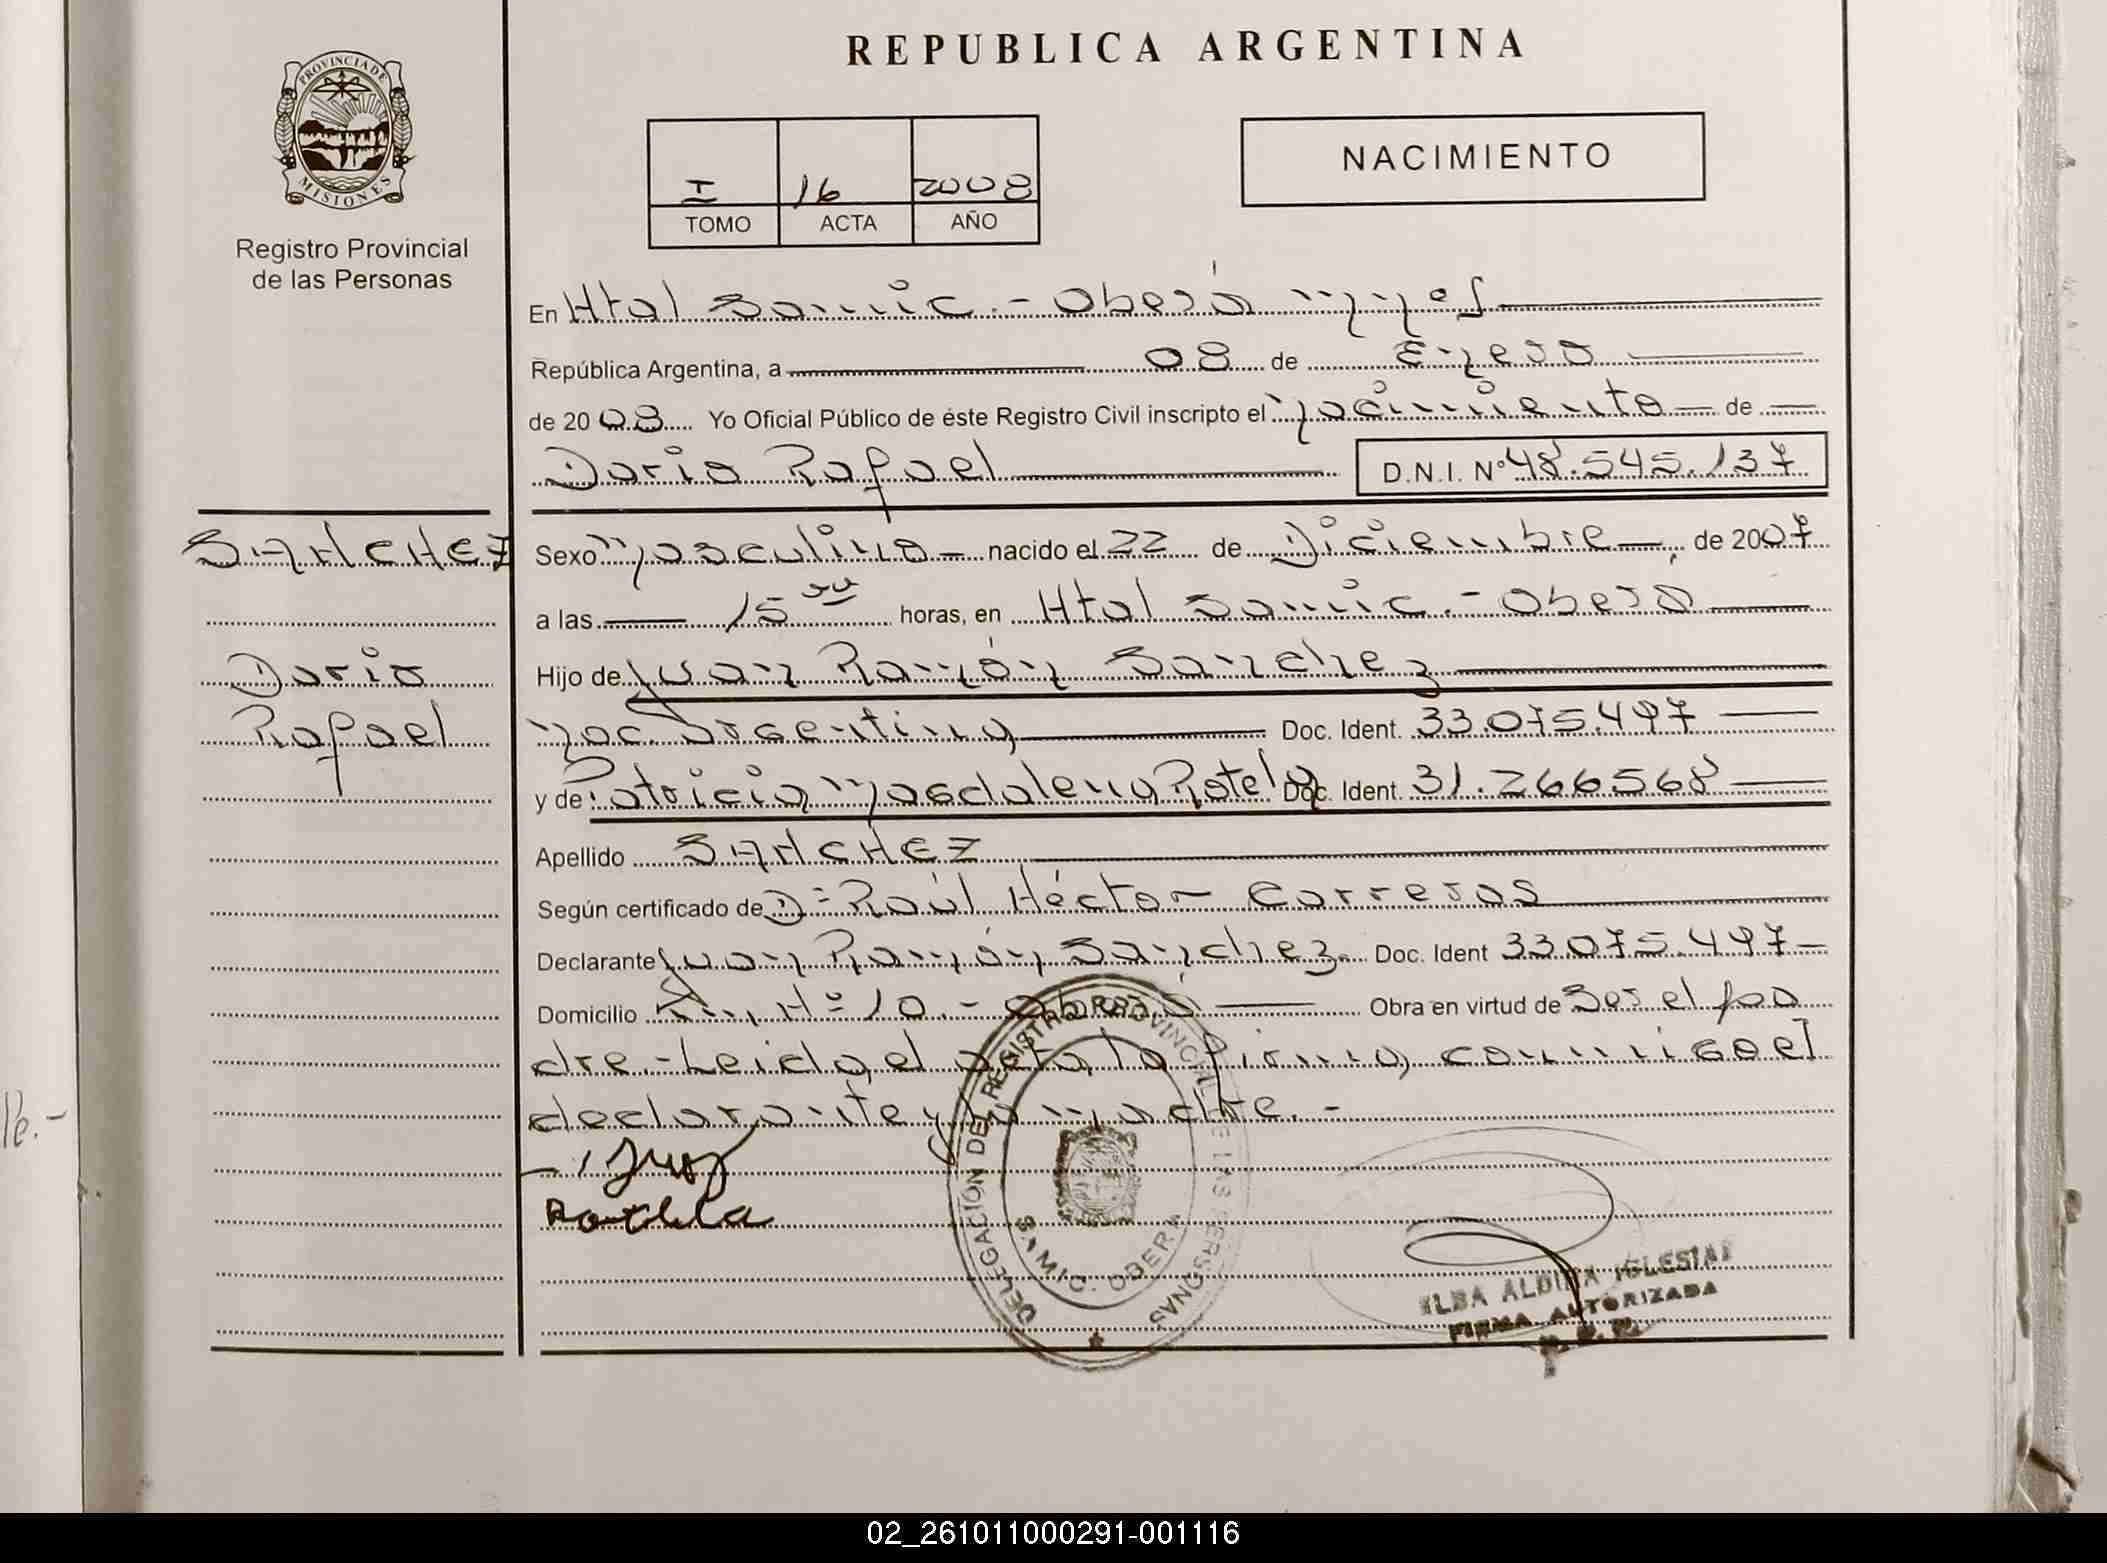 REPUBLICA ARGENTINA
PROVINCIA DE MISIONES
Registro Provincial
de las Personas
I 16 2008
TOMO ACTA AÑO
NACIMIENTO
En Htal Samic.- Oberá Mnes
República Argentina, a 08 de Enero
de 2008 Yo Oficial Público de éste Registro Civil inscripto el Nacimiento de
Dario Rafael D.N.I. Nº 48.545.137
SANCHEZ
Dario
Rafael
Sexo Masculino nacido el 22 de Diciembre de 2007
a las 15 horas, en Htal Samic.- Oberá
Hijo de Juan Ramón Sanchez
Nac. Argentina Doc. Ident. 33.075.497
y de Patricia Magdalena Rotela Doc. Ident. 31.266568
Apellido SANCHEZ
Según certificado de D: Raúl Héctor Carreras
Declarante Juan Ramón Sanchez. Doc. Ident 33.075.497
Domicilio Km Nº 10.- Oberá Obra en virtud de Ser el pa
dre.-Leida el acta la firma, conmigo el
declarante y la madre.-
Rotela
DELEGACIÓN DEL REGISTRO PROVINCIAL DE LAS PERSONAS
SAMIC. OBERA
ELBA ALDINA IGLESIAS
FIRMA AUTORIZADA
Pe.-
02_261011000291-001116